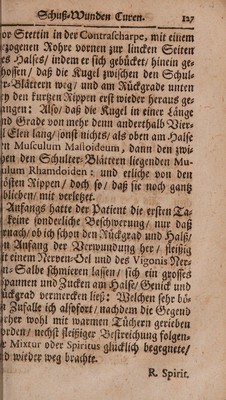 Schuß-Wunden Curen. 127
vor Stettin in der Contrascharpe, mit einem
gezogenen Rohre vornen zur lincken Seiten
des Halses / indem er sich gebücket / hinein ge-
schossen / daß die Kugel zwischen den Schul-
ter-Blättern weg / und am Rückgrade unten
bey den kurtzen Rippen erst wieder heraus ge-
gangen: Also / daß die Kugel in einer Länge
und Grade von mehr dem anderthalb Vier-
tel Elen lang / sonst nichts / als oben am Halse
den Musculum Mastoideum, dann den zwi-
schen den Schulter-Blättern liegenden Mu-
sculum Rhamdoiden: und etliche von den
grösten Rippen / doch so / daß sie noch gantz
blieben / mit verletzet.
Anfangs hatte der Patient die ersten Ta-
ge keine sonderliche Beschwerung / nur daß
hernach / ob ich schon den Rückgrad und Halß /
den Anfang der Verwundung her / fleißig
mit einem Nerven-Oel und des Vigonis Ner-
ven-Salbe schmieren lassen / sich ein grosses
Spannen und Zucken am Halse / Genick und
Rückgrad vermercken ließ: Welchen sehr bö-
sen Zufall ich alsofort / nachdem die Gegend
vorher wohl mit warmen Tüchern gerieben
worden / nechst fleißiger Bestreichung folgen-
der Mixtur oder Spiritus glücklich begegnete /
und wieder weg brachte.
R. Spirit.